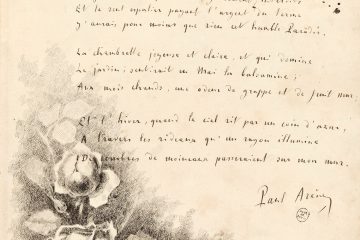 Et le seul mobilier payant l'argent du terme
J'aurais pour moins que rien cet humble Paradis.
La chambrette joyeuse et claire, et qui domine
Le jardin, sentirait en Mai la balsamine;
Aux mois chauds, une odeur de grappe et de fruit mur.
Et l'hiver, quand le ciel rit par un coin d'azur,
A travers les rideaux qu'un rayon illumine
Des ombres de moineaux passeraient sur mon mur.
Paul Arène